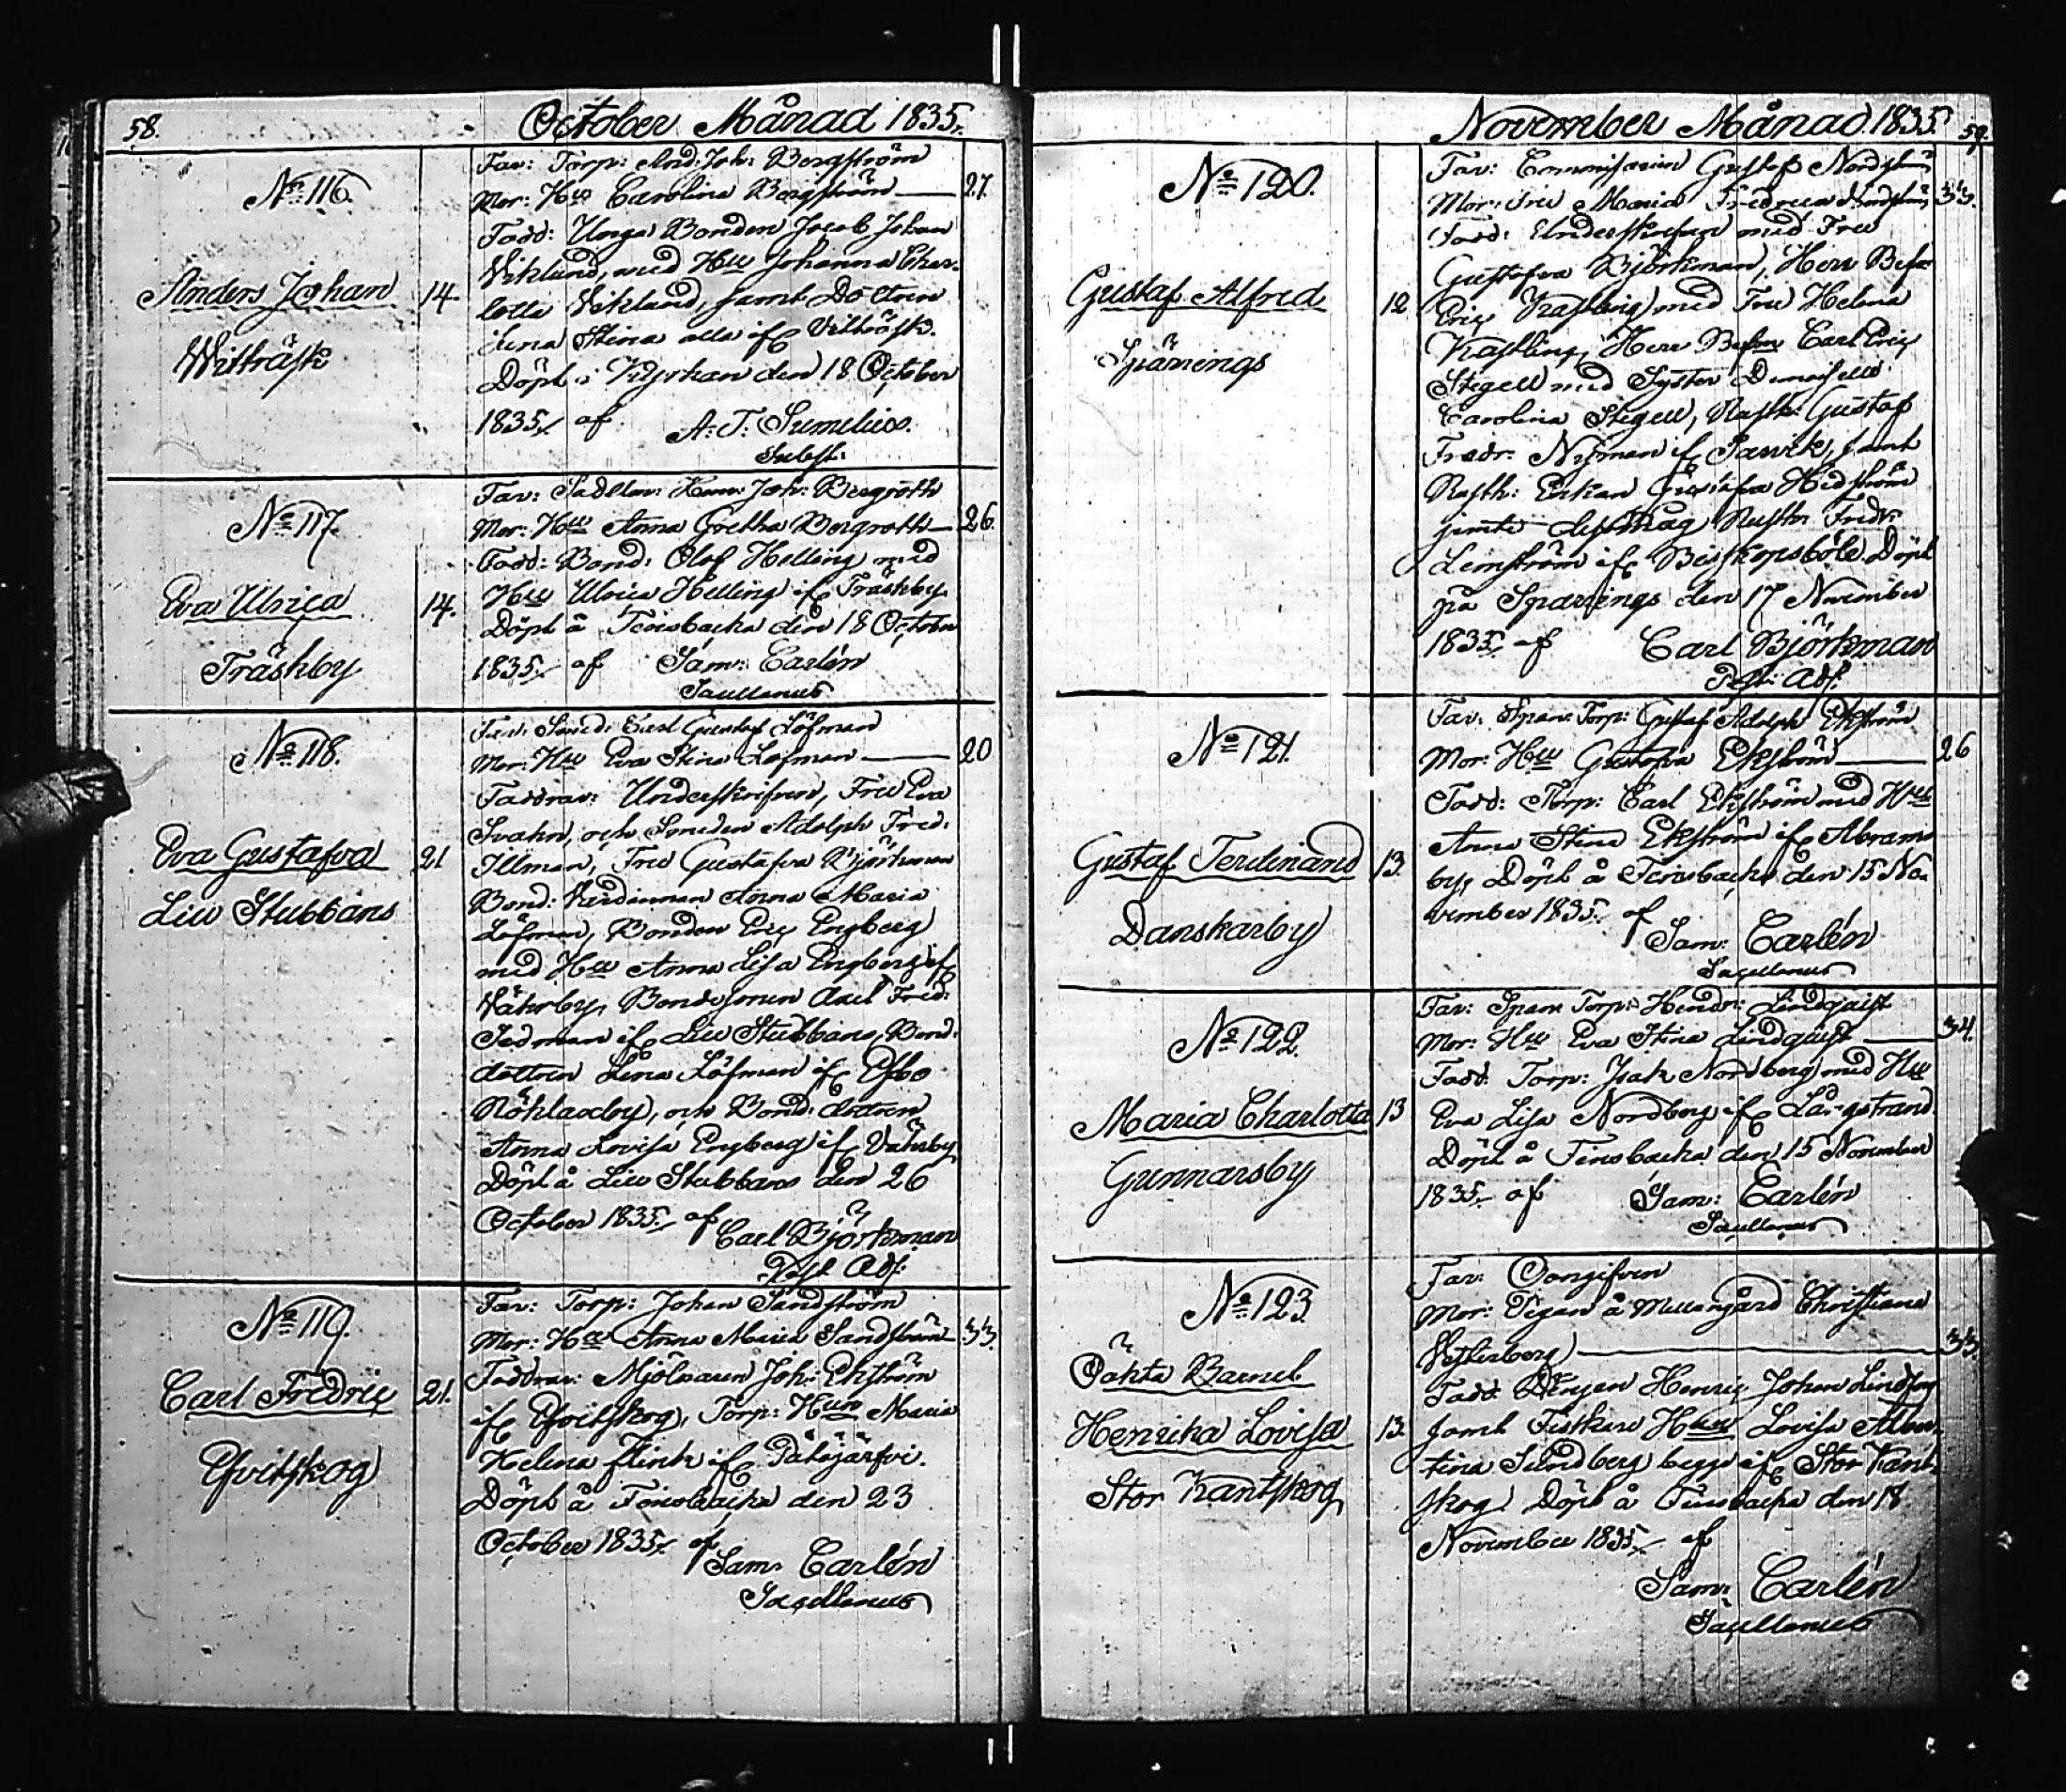 58.
October Månad 1835.
No 116.
Anders Johan
Wittträsk
14.
Far: Torp: And: Joh: Bergström
Mor: Hu Carolina Bergström
27.
Fadd: Unga Bonden Jacob Johan
Viklund, med Hu Johanna Char-
lotta Viklund, samt Dottren
Stina alla if
Döpt i Kyrkan den 18 October
1835. af A. T. Sumelius.
Subst:
No 117.
Eva Ulrica
Träskby
14.
Far: Joh: Bergroth
Mor: Hu Anna Gretha Bergroth
26.
Fadd: Bond: Olof Helling med
Hu Ulrica Helling if Träskby
Döpt å Finsbacka den 18 October
1835. af Sam: Carlén
Sacellanus
No 118.
Eva Gustafva
Liu Stubbans
21
Far: Smed: Carl Gustaf Löfman
Mor: Hu Eva Stina Löfman
20
Faddrar: Underskrifven, Fru Eva
Svahn, och Smeden Adolph Fred:
Illman, Fru Gustafva Björkman
Bond: Anna Maria
Löfman, Bonden Eric Engberg
med Hu Anna Lisa Engberg if
Vährby, Bondesonen Carl Fred:
if Liu Stubbans, Bond:
dottren Lena Löfman if Esbo
och Bond: dottren
Anna Lovisa Engberg if Vährby
Döpt å Liu Stubbans den 26
October 1835. af Carl Björkman
Past: Adj:
No 119.
Carl Fredric
Qvitskog
21.
Far: Torp: Johan Sandström
Mor: Hu Anna Maria Sandström
33.
Faddrar: Mjölnaren Joh: Ekström
if Qvitskog, Torp: Hun Maria
Helena Flink if Pätäjärfvi.
Döpt å Finsbacka den 23
October 1835. af
Sam: Carlén
Sacellanus
November Månad 1835.
59.
No 120.
Gustaf Alfred
Spärings
12
Far: Commissarien Gustaf
Mor: Fru Maria Fredrica
33.
Fadd: Underskrefven med Fru
Gustafva Björkman, Herr Befm
Eric med Fru Helena
Herr Befm Carl Eric
Stigell med Syster Demoiselle
Carolina Stigell, Rusth: Gustaf
Fredr: Nyman if samt
Rusth: Enkan Gustafva Hedström
jemte Rusth: Fredr:
Lemström if Biskopsböle. Döpt
på Spärings den 17 November
1835. af Carl Björkman
Past: Adj:
No 121.
Gustaf Ferdinand
Danskarby
13.
Far: Torp: Gustaf Adolph Ekström
Mor: Hu Gustafva Ekström
26
Fadd: Torp: Carl Ekström med Hu
Anna Stina Ekström if Abrams
by, Döpt å Finsbacka den 15 No-
vember 1835. af
Sam: Carlén
Sacellanus
No 122.
Maria Charlotta
Gunnarsby
13
Far: Torp: Hendr: Lindqvist
Mor: Hu Eva Stina Lindqvist
34.
Fadd: Torp: Isak Nordberg med Hu
Eva Lisa Nordberg if Långstrand
Döpt å Finsbacka den 15 November
1835. af Sam: Carlén
Sacellanus
No 123.
Oäkta Barnet
Henrika Lovisa
Stor Kantskog
13.
Far: Oangifven
Mor: Pigan å Mellangård Christiana
Vesterberg
33.
Fadd: Drengen Henric Johan
samt Fiskare Hun Lovisa Alber-
tina Sundberg begge if Stor Kant-
skog. Döpt å Finsbacka den 18
November 1835. af
Sam: Carlén
Sacellanus